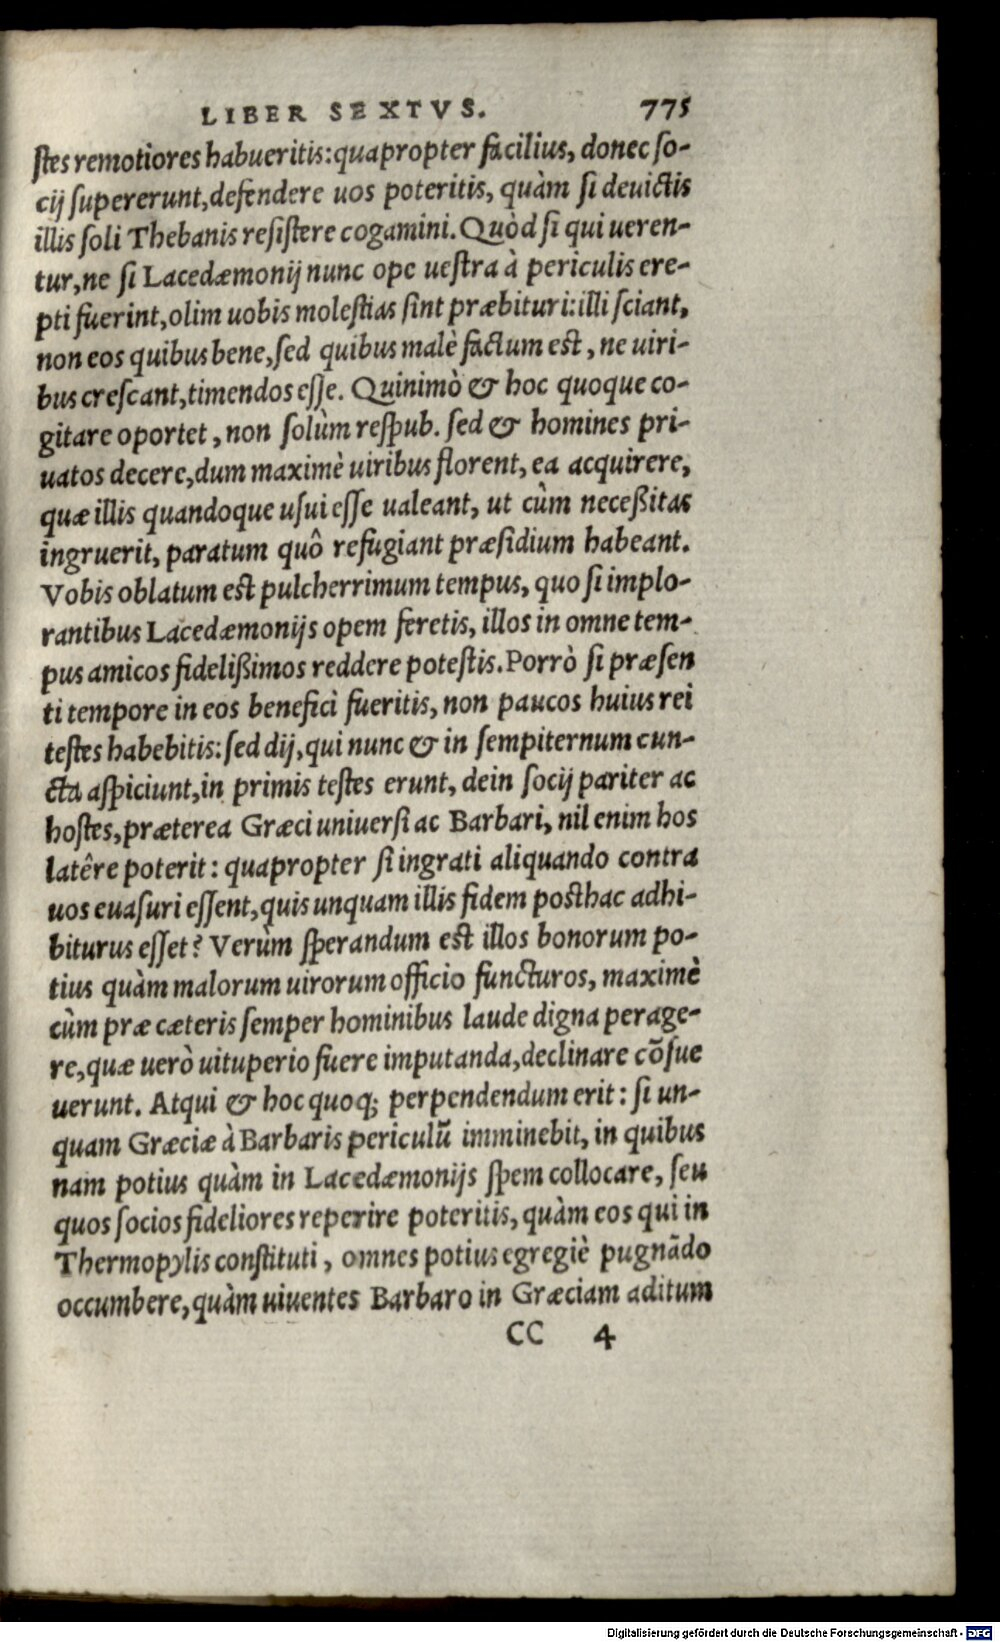 LIBER SEXTVS. 775
ſtes remotiores habueritis: quapropter facilius, donec ſo-
cij ſupererunt, defendere uos poteritis, quàm ſi deuictis
illis ſoli Thebanis reſiſtere cogamini. Quòd ſi qui ueren-
tur, ne ſi Lacedæmonij nunc ope ueſtra à periculis ere-
pti fuerint, olim uobis moleſtias ſint præbituri: illi ſciant,
non eos quibus bene, ſed quibus malè factum eſt, ne uiri-
bus creſcant, timendos eſſe. Quinimò & hoc quoque co-
gitare oportet, non ſolùm reſpub. ſed & homines pri-
uatos decere, dum maximè uiribus florent, ea acquirere,
quæ illis quandoque uſui eſſe ualeant, ut cùm neceßitas
ingruerit, paratum quô refugiant præſidium habeant.
Vobis oblatum eſt pulcherrimum tempus, quo ſi implo-
rantibus Lacedæmonijs opem feretis, illos in omne tem-
pus amicos fidelißimos reddere poteſtis. Porrò ſi præſen
ti tempore in eos benefici fueritis, non paucos huius rei
teſtes habebitis: ſed dij, qui nunc & in ſempiternum cun-
cta aſpiciunt, in primis teſtes erunt, dein ſocij pariter ac
hoſtes, præterea Græci uniuerſi ac Barbari, nil enim hos
latêre poterit: quapropter ſi ingrati aliquando contra
uos euaſuri eſſent, quis unquam illis fidem poſthac adhi-
biturus eſſet? Verùm ſperandum eſt illos bonorum po-
tius quàm malorum uirorum officio functuros, maximè
cùm præ cæteris ſemper hominibus laude digna perage-
re, quæ uerò uituperio fuere imputanda, declinare cõſue
uerunt. Atqui & hoc quoq; perpendendum erit: ſi un-
quam Græciæ à Barbaris periculũ imminebit, in quibus
nam potius quàm in Lacedæmonijs ſpem collocare, ſeu
quos ſocios fideliores reperire poteritis, quàm eos qui in
Thermopylis conſtituti, omnes potius egregiè pugnãdo
occumbere, quàm uiuentes Barbaro in Græciam aditum
CC 4
Digitalisierung gefördert durch die Deutsche Forschungsgemeinschaft - DFG